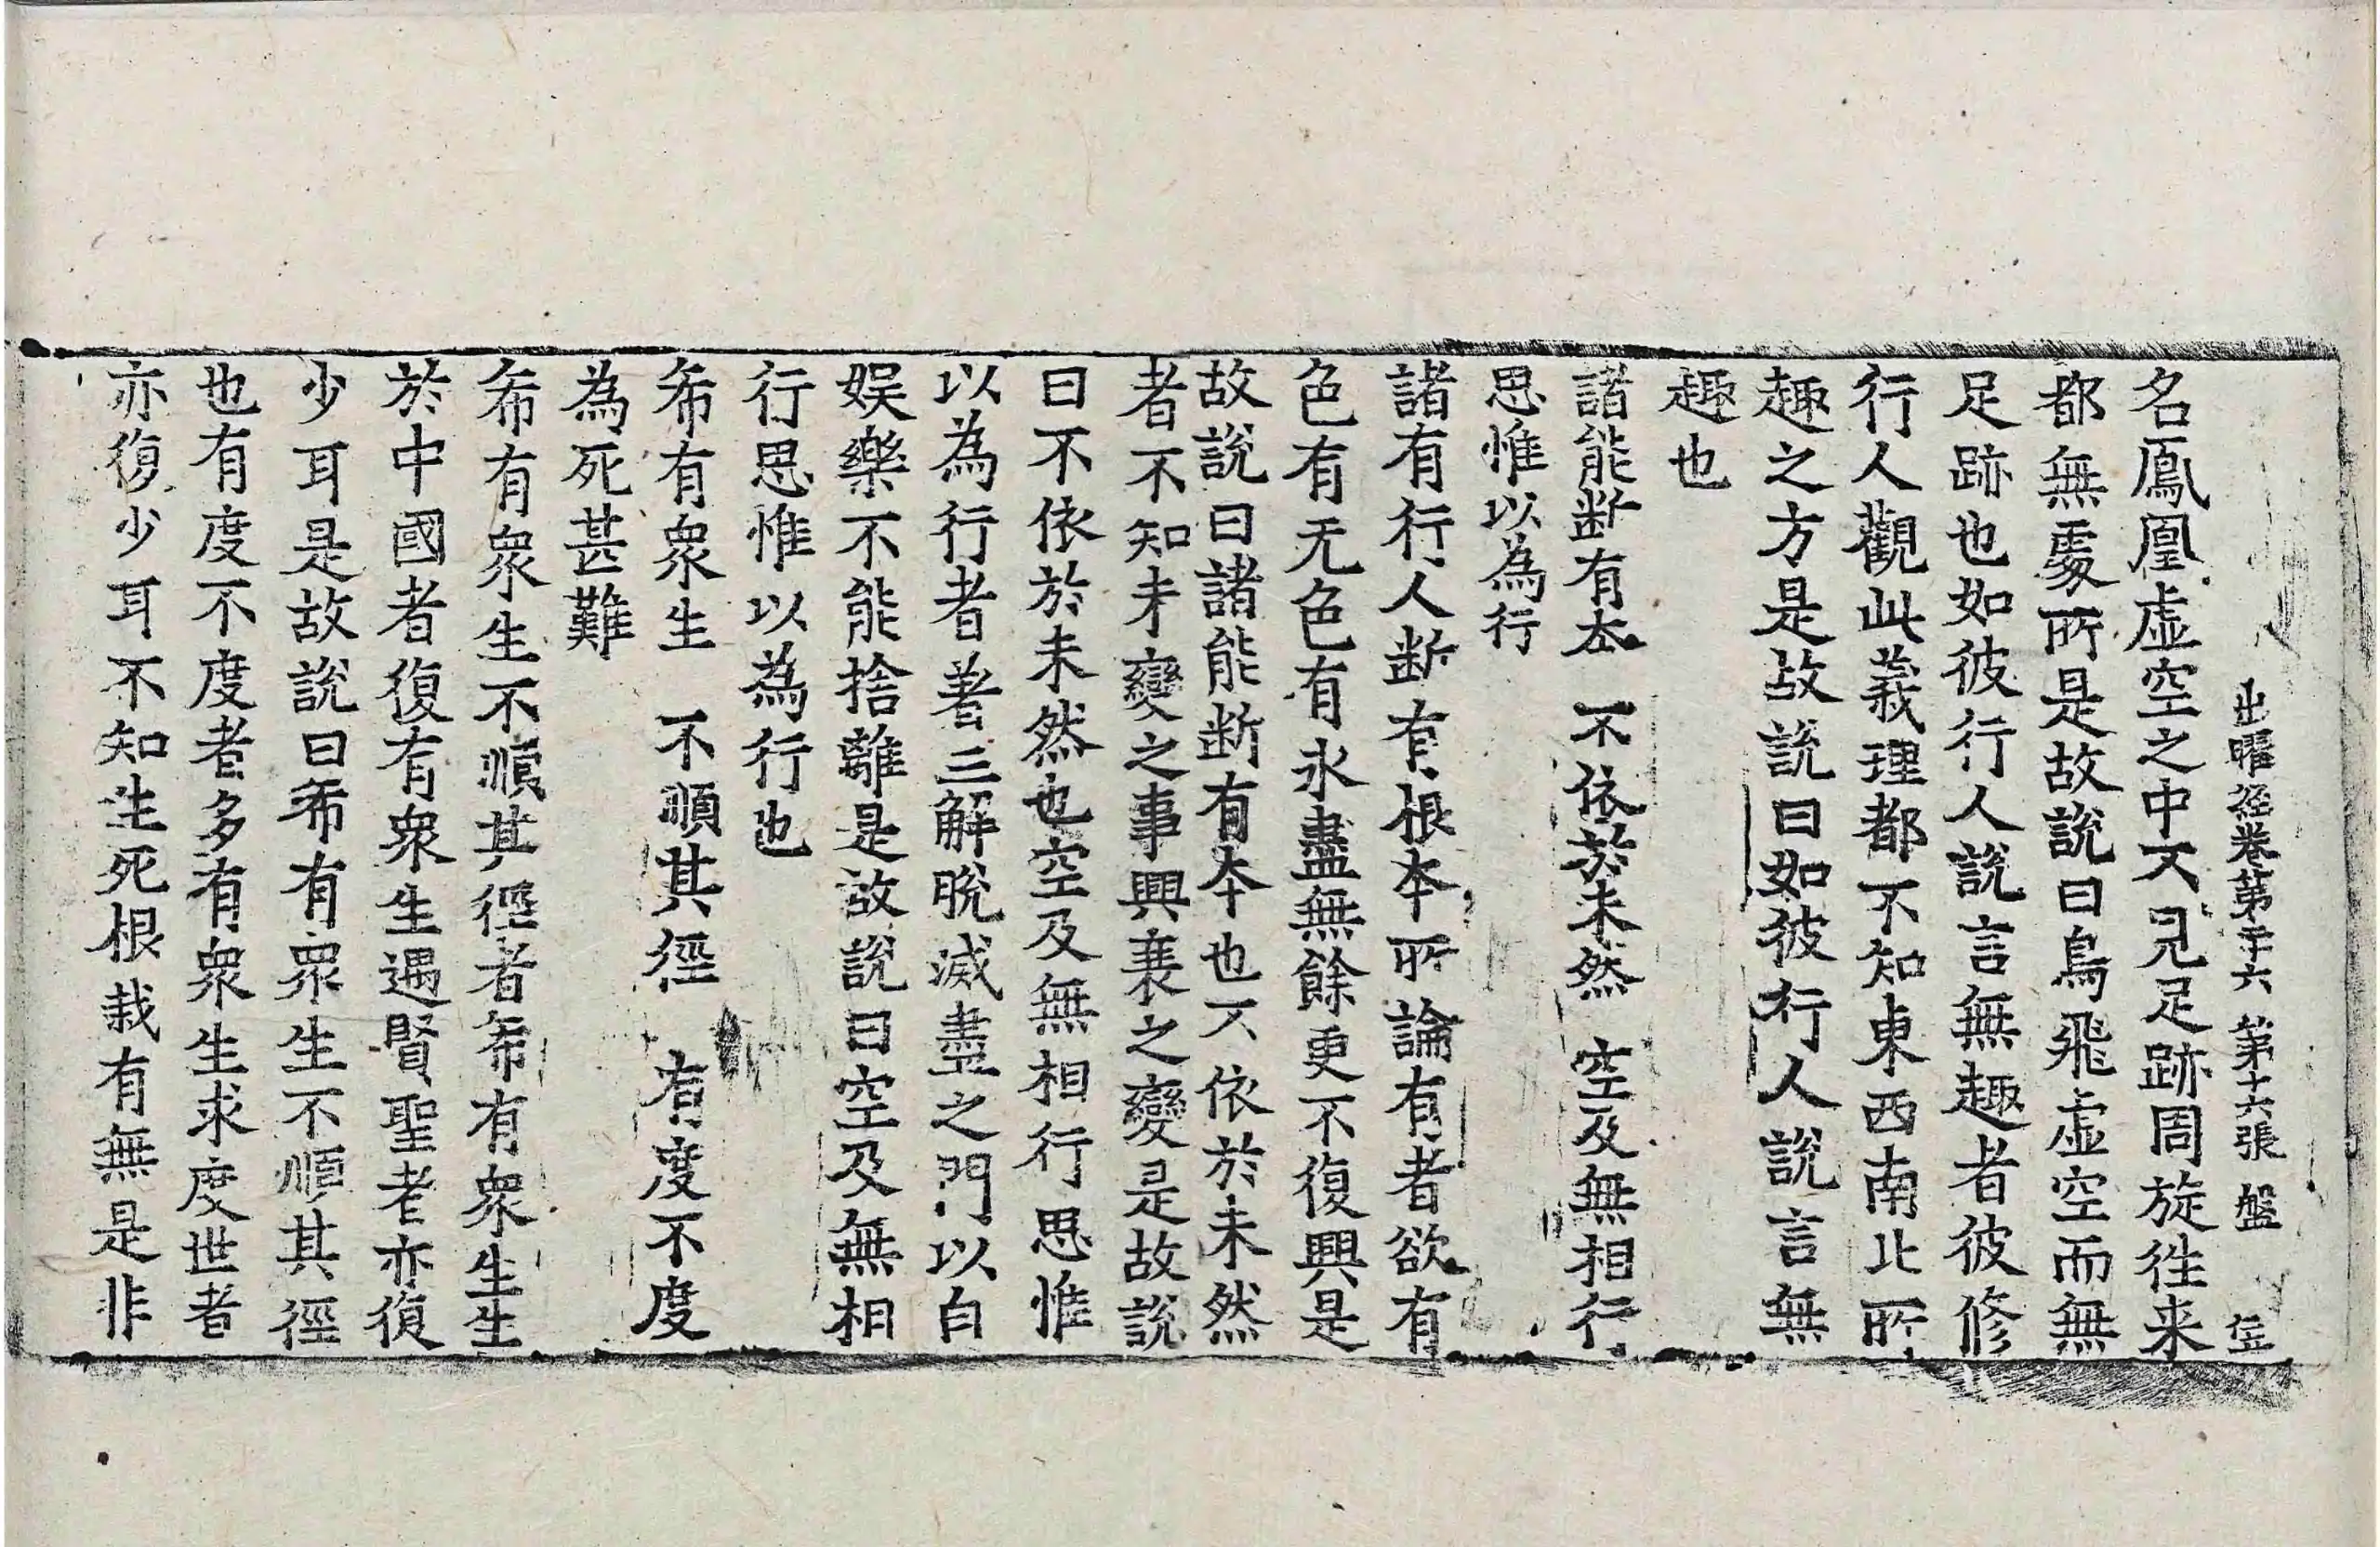 出曜經卷第二十六 第十六張 盤
名鳳凰虛空之中不見足跡周旋徃来
都無處所是故說曰鳥飛虛空而無
足跡也如彼行人說言無趣者彼修
行人觀此義理都不知東西南北所
趣之方是故說曰如彼行人說言無
趣也
諸能断有本　不依於未然　空及無相行
思惟以為行
諸有行人断有根本所論有者欲有
色有无色有永盡無餘更不復興是
故說曰諸能断有本也不依於未然
者不知未變之事興衰之變是故說
曰不依於未然也空及無相行思惟
以為行者著三解脫滅盡之門以自
娱樂不能捨離是故說曰空及無相
行思惟以為行也
希有衆生　不順其徑　有度不度
為死甚難
希有衆生不順其徑者希有衆生生
於中國者復有衆生遇賢聖者亦復
少耳是故說曰希有衆生不順其徑
也有度不度者多有衆生求度世者
亦復少耳不知生死根栽有無是非